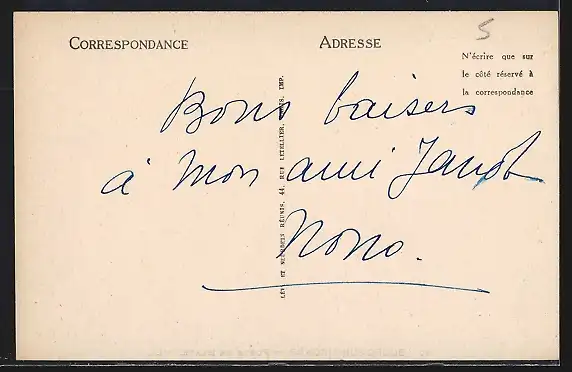 5
CORRESPONDANCE
ADRESSE
N'écrire que sur
le côté réservé à
la correspondance
Bons baisers
à Mon ami Janot
Nono.
LÉVY ET NEURDEIN RÉUNIS, 44, RUE LETELLIER, PARIS, IMP.